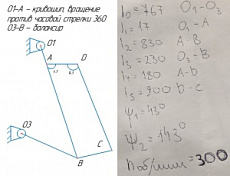 O1-A – кривошип, вращение
против часовой стрелки 360
O3-B – балансир
O1
A
D
O3
B
C
l₀ = 767 O₁-O₃
l₁ = 17 O₁-A
l₂ = 830 A-B
l₃ = 230 O₃-B
l₄ = 180 A-b
l₅ = 900 b-c
Ψ₁ = 43°
Ψ₂ = 143°
n об/мин = 300